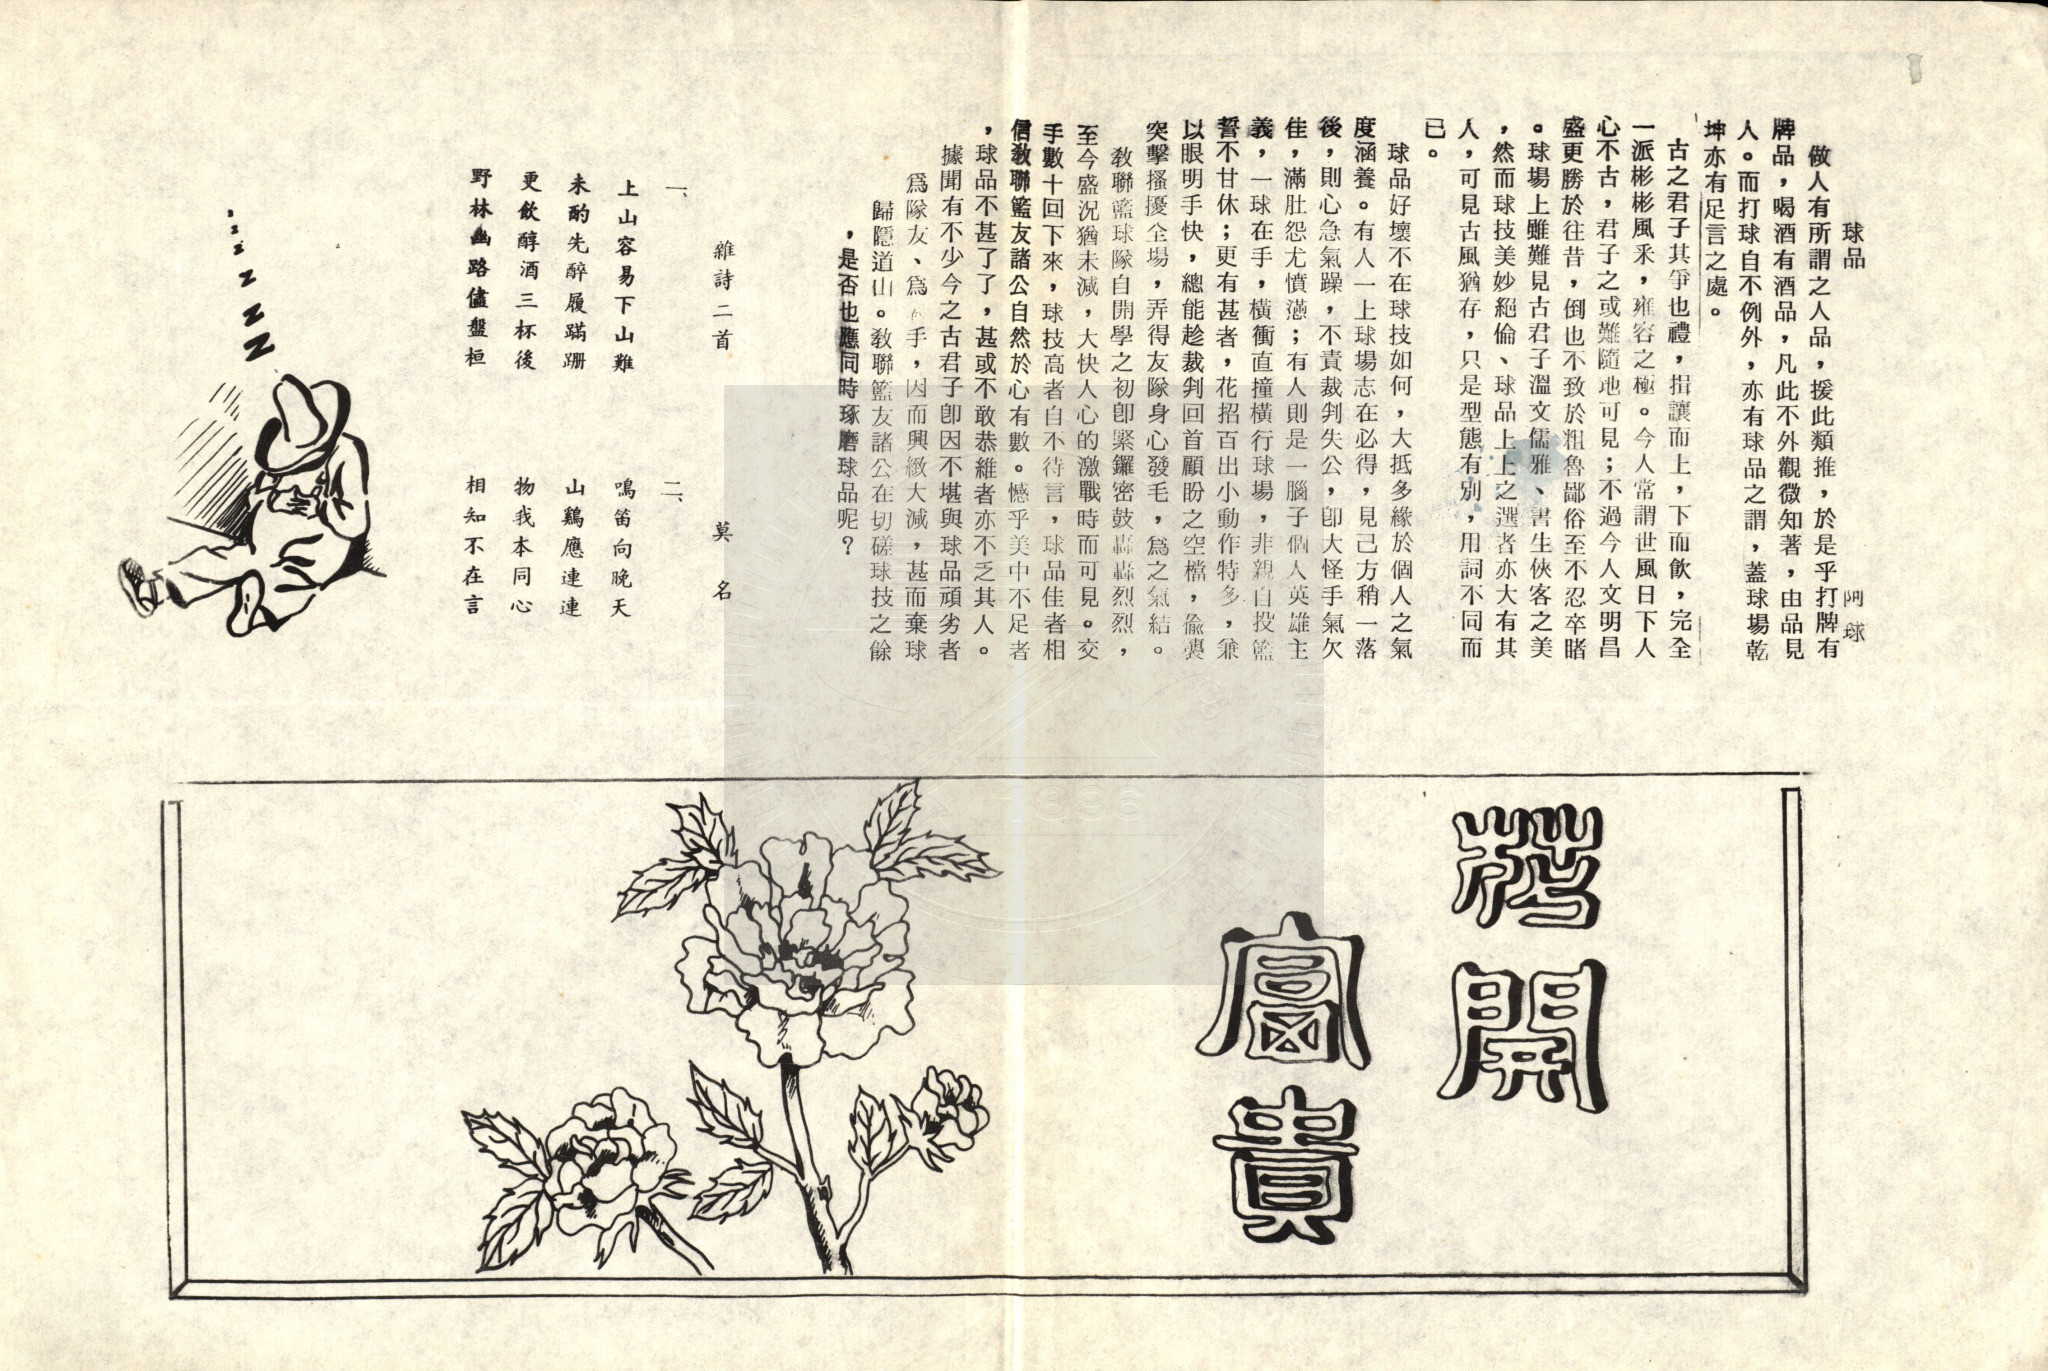 球品
阿球
做人有所謂之人品，援此類推，於是乎打牌有
牌品，喝酒有酒品，凡此不外觀微知著，由品見
人。而打球自不例外，亦有球品之謂，蓋球場乾
坤亦有足言之處。
古之君子其爭也禮，揖讓而上，下而飲，完全
一派彬彬風釆，雍容之極。今人常謂世風日下人
心不古，君子之或難隨地可見；不過今人文明昌
盛更勝於往昔，倒也不致於粗魯鄙俗至不忍卒睹
。球場上雖難見古君子溫文儒雅、書生俠客之美
，然而球技美妙絕倫、球品上上之選者亦大有其
人，可見古風猶存，只是型態有別，用詞不同而
已。
球品好壞不在球技如何，大抵多緣於個人之氣
度涵養。有人一上球場志在必得，見己方稍一落
後，則心急氣躁，不責裁判失公，卽大怪手氣欠
佳，滿肚怨尤憤懣；有人則是一腦子個人英雄主
義，一球在手，橫衝直撞橫行球場，非親自投籃
誓不甘休；更有甚者，花招百出小動作特多，兼
以眼明手快，總能趁裁判回首顧盼之空檔，偸襲
突擊搔擾全場，弄得友隊身心發毛，爲之氣結。
敎聯籃球隊自開學之初卽緊鑼密鼓轟轟烈烈，
至今盛況猶未減，大快人心的激戰時而可見。交
手數十回下來，球技高者自不待言，球品佳者相
信敎聯籃友諸公自然於心有數。憾乎美中不足者
，球品不甚了了，甚或不敢恭維者亦不乏其人。
據聞有不少今之古君子卽因不堪與球品頑劣者
爲隊友、爲手，因而興緻大減，甚而棄球
歸隱道山。敎聯籃友諸公在切磋球技之餘
，是否也應同時琢磨球品呢？
雜詩二首
莫名
一、
上山容易下山難
未酌先醉履蹣跚
更飲醇酒三杯後
野林幽路儘盤桓
二、
鳴笛向晚天
山鷄應連連
物我本同心
相知不在言
zzzzz
花開
富貴